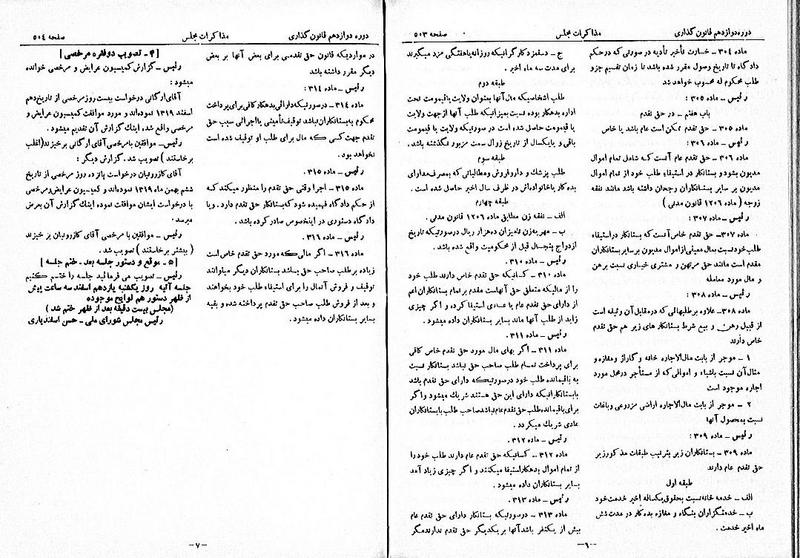 دوره دوازدهم قانون گذاری
مذاکرات مجلس
صفحه ۵۰۳
ماده ۳۰۴ - خسارت تأخیر تأدیه در صورتی که در حکم
دادگاه تا تاریخ وصول مقرر شده باشد تا زمان تقسیم جزو
طلب محکوم له محسوب خواهد شد
رئیس - ماده ۳۰۵ :
باب هفتم - در حق تقدم
ماده ۳۰۵ - حق تقدم ممکن است عام باشد یا خاص
رئیس - ماده ۳۰۶ :
ماده ۳۰۶ - حق تقدم عام آنست که شامل تمام اموال
مدیون بشود و بستانکار در استیفاء طلب خود از تمام اموال
مدیون بر سایر بستانکاران رجحان داشته باشد مانند نفقه
زوجه (ماده ۱۲۰۶ قانون مدنی)
رئیس - ماده ۳۰۷ :
ماده ۳۰۷ - حق تقدم خاص آنست که بستانکار در استیفاء
طلب خود نسبت بمال معینی از اموال مدیون بر سایر بستانکاران
مقدم است مانند حق مرتهن و مشتری خیاری نسبت برهن
و مال مورد معامله
رئیس - ماده ۳۰۸ :
ماده ۳۰۸ - علاوه بر طلبهائی که در مقابل آن وثیقه است
از قبیل رهن و بیع شرط بستانکار های زیر هم حق تقدم
خاص دارند
۱ - موجر از بابت مال الاجاره خانه و گاراژ و مغازه و
مثال آن نسبت باشیاء و اموالی که از مستأجر در محل مورد
اجاره موجود است
۲ - موجر از بابت مال الاجاره اراضی مزروعی و باغات
نسبت به محصول آنها
رئیس - ماده ۳۰۹ :
ماده ۳۰۹ - بستانکاران زیر بترتیب طبقات مذکور زیر
حق تقدم عام دارند
طبقه اول
الف - خدمه خانه نسبت بحقوق یکساله اخیر خدمت خود
ب - خدمتگزاران بنگاه و مغازه بدهکار در مدت شش
ماه اخیر خدمت .
ج - دستمزد کارگرانیکه روزانه یا هفتگی مزد میگیرند
برای مدت سه ماه اخیر .
طبقه دوم
طلب اشخاصیکه مال آنها بعنوان ولایت یا قیمومت تحت
اداره بدهکار بوده نسبت بمیزانیکه طلب آنها از جهت ولایت
یا قیمومت حاصل شده است در صورتیکه ولایت یا قیمومت
باقی و یا یکسال از تاریخ زوال سمت مزبور نگذشته باشد .
طبقه سوم
طلب پزشک و داروفروش و مطالباتی که به مصرف مداوای
بدهکار یا خانواده اش در ظرف سال اخیر حاصل شده است .
طبقه چهارم
الف - نفقه زن مطابق ماده ۱۲۰۶ قانون مدنی .
ب - مهر به زن تا میزان ده هزار ریال در صورتیکه تاریخ
ازدواج پنجسال قبل از محکومیت واقع شده باشد .
رئیس - ماده ۳۱۰ :
ماده ۳۱۰ - کسانیکه حق تقدم خاص دارند طلب خود
را از مالیکه متعلق حق آنهاست مقدم بر تمام بستانکاران اعم
از دارای حق تقدم عام یا عادی استیفا کرده و اگر چیزی
زاید از طلب آنها ماند بسایر بستانکاران داده میشود .
رئیس - ماده ۳۱۱ :
ماده ۳۱۱ - اگر بهای مال مورد حق تقدم خاص کافی
برای پرداخت تمام طلب صاحب حق نباشد بستانکار نسبت
به باقیمانده طلب خود در صورتیکه دارای حق تقدم باشد
با بستانکارانیکه دارای این حق هستند شریک میشود و اگر
برای باقیمانده طلب حق تقدم عام نباشد صاحب طلب با بستانکاران
عادی شریک میگردد .
رئیس - ماده ۳۱۲ :
ماده ۳۱۲ - کسانیکه حق تقدم عام دارند طلب خود را
از تمام اموال بدهکار استیفا میکنند و اگر چیزی زیاد آمد
بسایر بستانکاران داده میشود .
رئیس - ماده ۳۱۳ :
ماده ۳۱۳ - در صورتیکه بستانکار دارای حق تقدم عام
بیش از یکنفر باشد آنها بر یکدیگر حق تقدم ندارند مگر
- ۶ -
دوره دوازدهم قانون گذاری
مذاکرات مجلس
صفحه ۵۰۴
در مواردیکه قانون حق تقدمی برای بعض آنها بر بعض
دیگر مقرر داشته باشد
رئیس - ماده ۳۱۴ :
ماده ۳۱۴ - در صورتیکه دارائی بدهکار کافی برای پرداخت
محکوم به یا بستانکاران نباشد توقیف تأمینی یا اجرائی سبب حق
تقدم جهت کسی که مال برای طلب او توقیف شده است
نخواهد بود .
رئیس - ماده ۳۱۵ .
ماده ۳۱۵ - اجرا وقتی حق تقدم را منظور میکند که
از حکم دادگاه فهمیده شود که بستانکار حق تقدم دارد . و یا
دادگاه دستوری در اینخصوص صادر کرده باشد .
رئیس - ماده ۳۱۶ .
ماده ۳۱۶ - اگر مالی که مورد حق تقدم خاص است
زیاده بر طلب صاحب حق باشد بستانکاران دیگر میتوانند
توقیف و فروش آنمال را برای استیفاء طلب خود بخواهند
و بعد از فروش طلب صاحب حق تقدم پرداخته شده و بقیه
بسایر بستانکاران داده میشود .
[ ۴ - تصویب دو فقره مرخصی ]
رئیس - گزارش کمیسیون عرایض و مرخصی خوانده
میشود :
آقای ارگانی درخواست بیست روز مرخصی از تاریخ دهم
اسفند ۱۳۱۸ نموده اند و مورد موافقت کمیسیون عرایض و
مرخصی واقع شده اینک گزارش آن تقدیم میشود .
رئیس - موافقین با مرخصی آقای ارگانی برخیزند (اغلب
برخاستند) تصویب شد . گزارش دیگر :
آقای کازرونیان درخواست پانزده روز مرخصی از تاریخ
ششم بهمن ماه ۱۳۱۹ نموده اند و کمیسیون عرایض و مرخصی
با درخواست ایشان موافقت نموده اینک گزارش آن بعرض
میرسد .
رئیس - موافقین با مرخصی آقای کازرونیان برخیزند
( بیشتر برخاستند ) تصویب شد .
[ ۵ - موقع و دستور جلسه بعد - ختم جلسه ]
رئیس - تصویب می فرمائید جلسه را ختم کنیم
جلسه آتیه روز یکشنبه یازدهم اسفند سه ساعت پیش
از ظهر دستور هم لوایح موجوده
(مجلس بیست دقیقه بعد از ظهر ختم شد)
رئیس مجلس شورای ملی - حسن اسفندیاری
- ۷ -